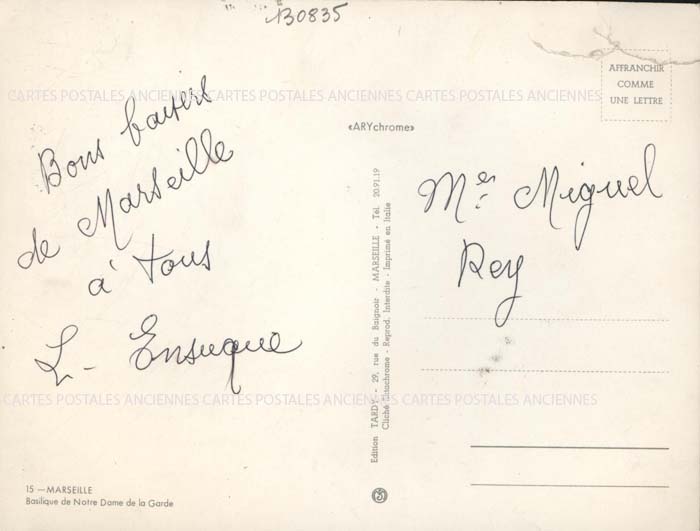 B0835
AFFRANCHIR
COMME
UNE LETTRE
CARTES POSTALES ANCIENNES CARTES POSTALES ANCIENNES CARTES POSTALES ANCIENNES
«ARYchrome»
Bons baisers
de Marseille
à tous
L- Ensuque
Mer Miguel
Rey
Edition TARDY - 29, rue du Baignoir - MARSEILLE - Tél. 20.91.19
Cliché Sittochrome - Reprod. Interdite - Imprimé en Italie
CARTES POSTALES ANCIENNES CARTES POSTALES ANCIENNES CARTES POSTALES ANCIENNES
15 — MARSEILLE
Basilique de Notre Dame de la Garde